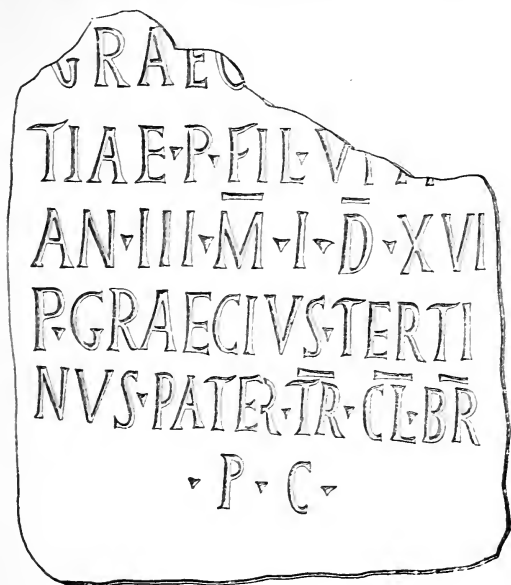 GRAEC
TIAE·P·FIL·
AN·III·M̅·I·D̅·XVI
P·GRAECIVS·TERTI
NVS·PATER·T̅R̅·C̅L̅·B̅R̅
·P·C·